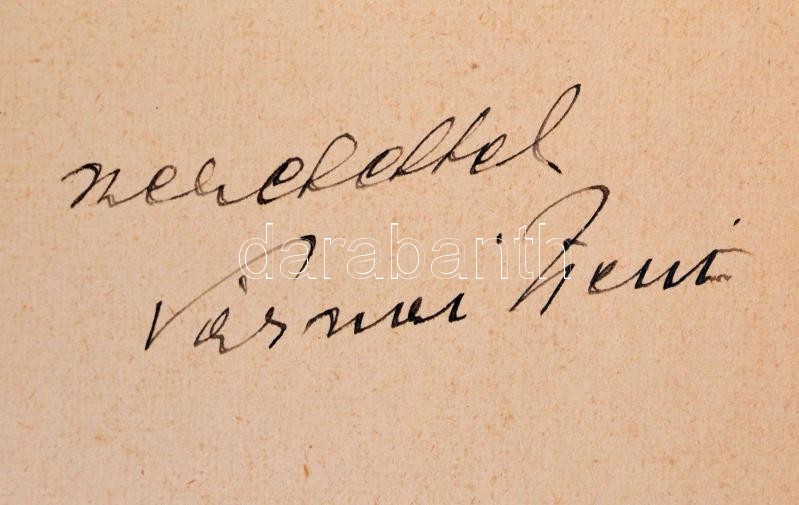 szeretettel
darabanth
Várnai Zseni